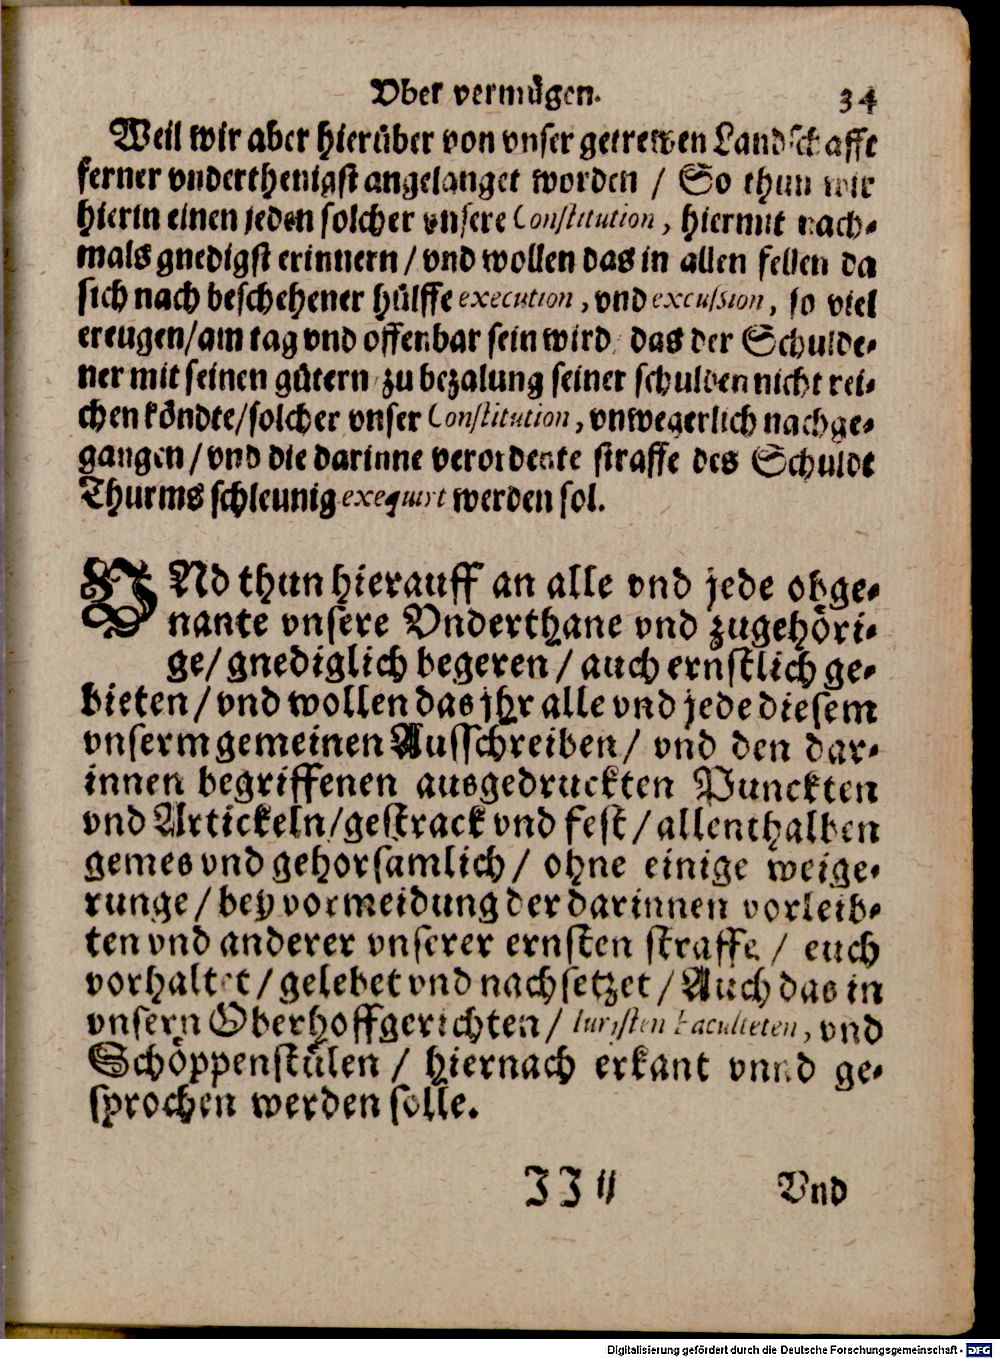 Vber vermügen. 34
Weil wir aber hierüber von vnser getrewen Landschafft
ferner vnderthenigst angelanget worden / So thun wir
hierin einen jeden solcher vnsere Constitution, hiermit nach-
mals gnedigst erinnern / vnd wollen das in allen fellen da
sich nach beschehener hülffe execution, vnd excussion, so viel
ereugen/am tag vnd offenbar sein wird, das der Schulde-
ner mit seinen gütern zu bezalung seiner schulden nicht rei-
chen köndte/solcher vnser Constitution, vnwegerlich nachge-
gangen / vnd die darinne verordente straffe des Schuldt
Thurms schleunig exequirt werden sol.
VNd thun hierauff an alle vnd jede obge-
nante vnsere Vnderthane vnd zugehöri-
ge/ gnediglich begeren / auch ernstlich ge-
bieten / vnd wollen das jhr alle vnd jede diesem
vnserm gemeinen Ausschreiben/ vnd den dar-
innen begriffenen ausgedruckten Punckten
vnd Artickeln/gestrack vnd fest / allenthalben
gemes vnd gehorsamlich / ohne einige weige-
runge / bey vormeidung der darinnen vorleib-
ten vnd anderer vnserer ernsten straffe / euch
vorhaltet / gelebet vnd nachsetzet / Auch das in
vnsern Oberhoffgerichten / Iuristen Faculteten, vnd
Schöppenstülen / hiernach erkant vnnd ge-
sprochen werden solle.
JJ ij Vnd
Digitalisierung gefördert durch die Deutsche Forschungsgemeinschaft - DFG